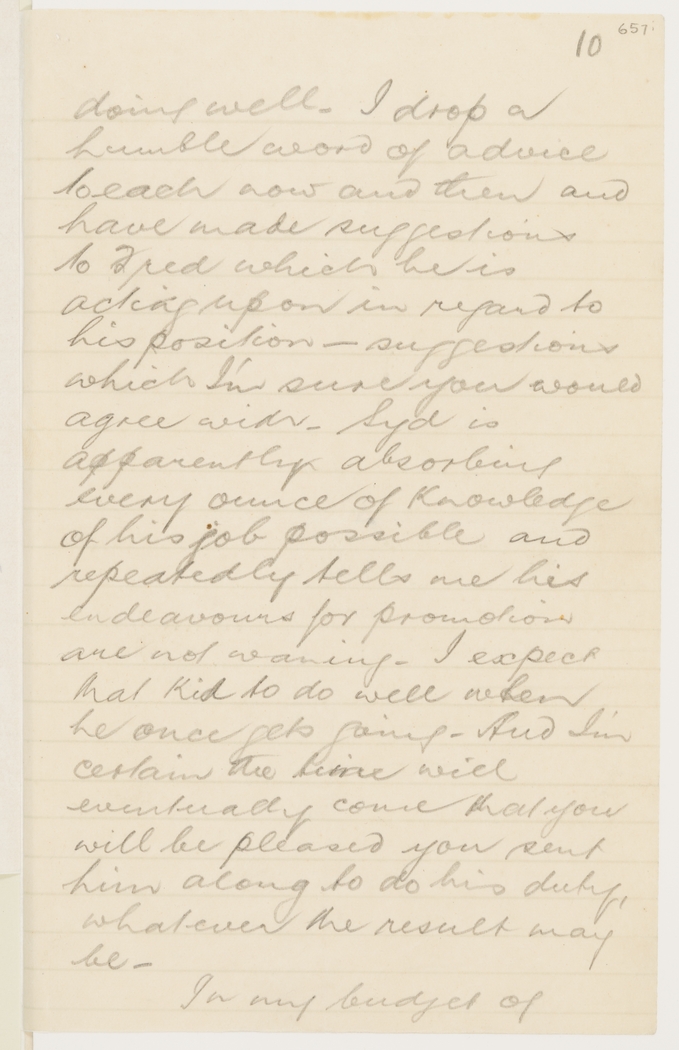 10 657.
doing well - I drop a
humble word of advice
to each now and then and
have made suggestions
to Fred which he is
acting upon in regard to
his position - suggestions
which I'm sure you would
agree with - Syd is
apparently absorbing
every ounce of knowledge
of his job possible and
repeatedly tells me his
endeavours for promotion
are not waning - I expect
that Kid to do well when
he once gets going - And I'm
certain the time will
eventually come that you
will be pleased you sent
him along to do his duty,
whatever the result may
be -
In my budget of